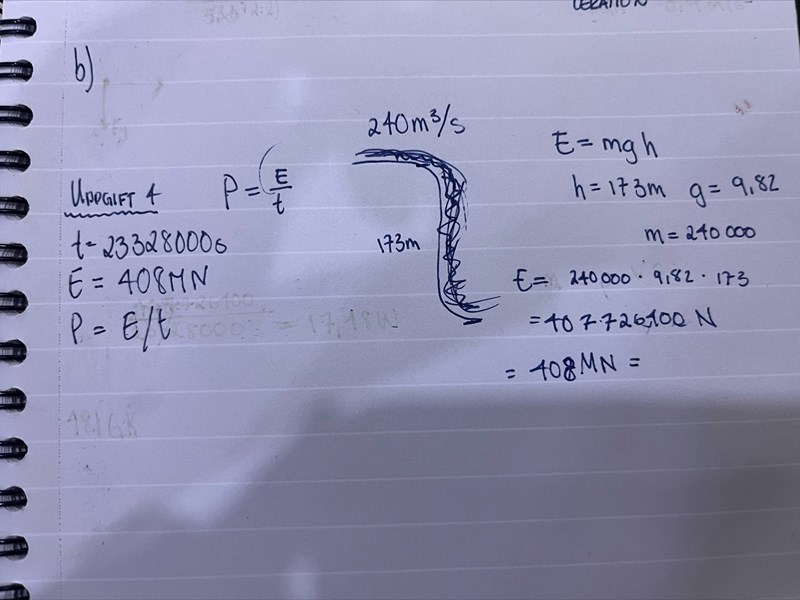 b)
240m³/s
UPPGIFT 4
P = E/t
t = 23328000s
E = 408MN
P = E/t
173m
E = mgh
h = 173m g = 9,82
m = 240 000
E = 240000 · 9,82 · 173
= 407.726,400 N
= 408MN =
= 17,48W